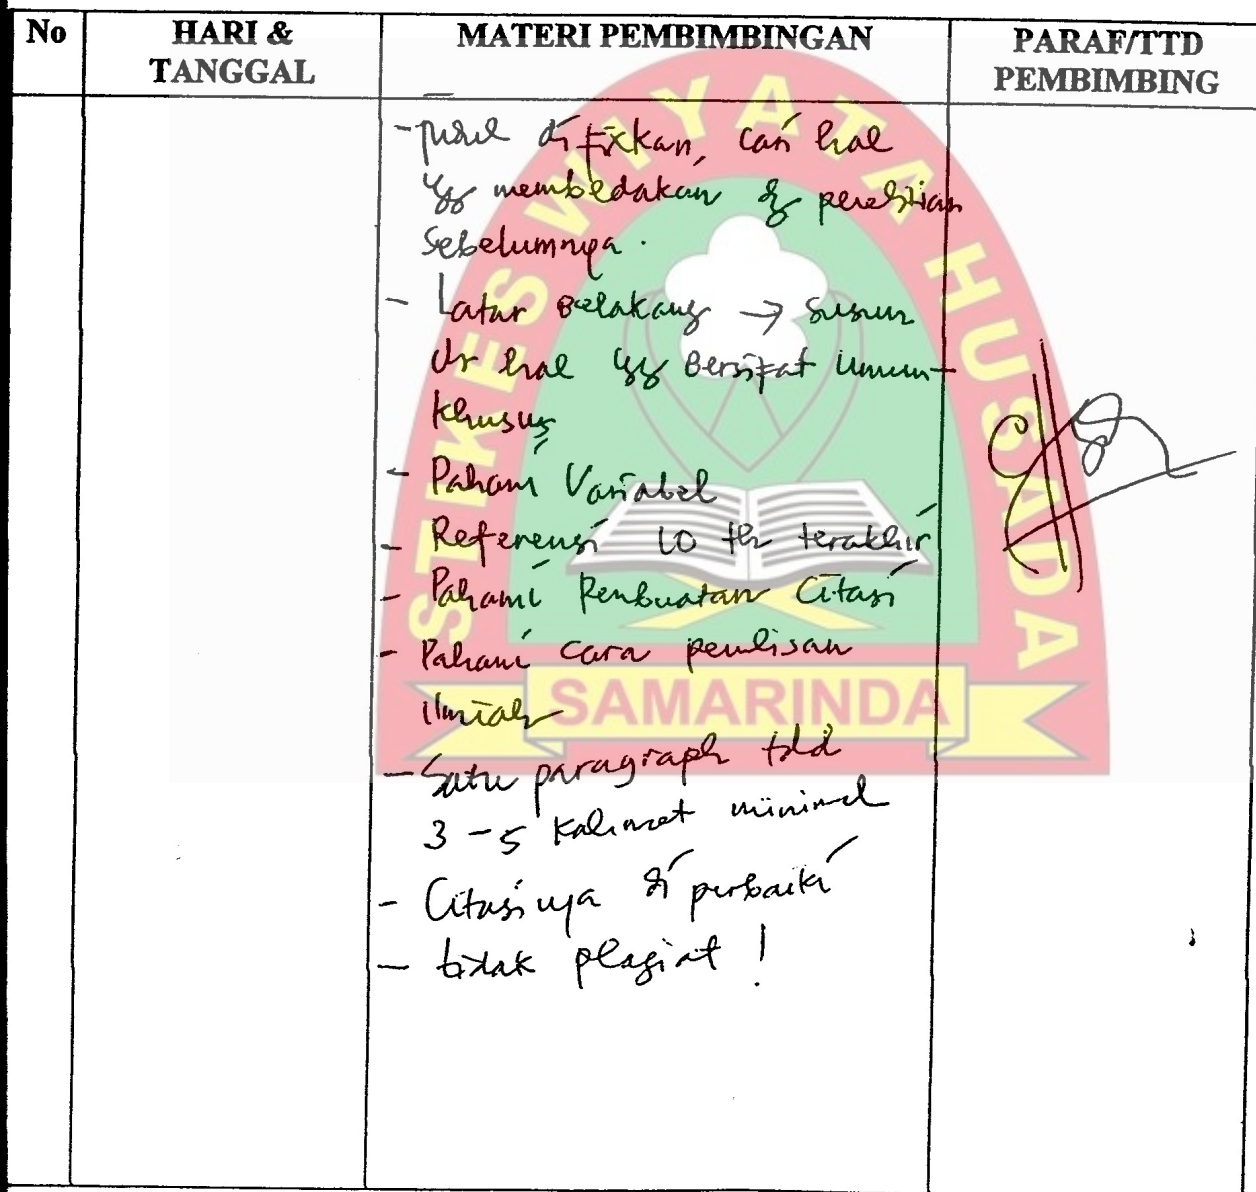 No
HARI &
TANGGAL
MATERI PEMBIMBINGAN
PARAF/TTD
PEMBIMBING
STIKES WIYATA HUSADA
SAMARINDA
- judul di fixkan, cari hal
yg membedakan dg penelitian
sebelumnya.
- Latar Belakang → susun
dr hal yg Bersifat Umum -
khusus
- Pahami Variabel
- Referensi 10 th terakhir
- Pahami Pembuatan Citasi
- Pahami cara penulisan
ilmiah
- Satu paragraph tdd
3 - 5 Kalimat minimal
- Citasinya di perbaiki
- tidak plagiat !